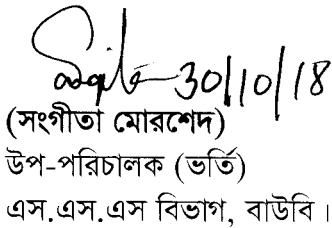 30/10/18
(সংগীতা মোরশেদ)
উপ-পরিচালক (ভর্তি)
এস.এস.এস বিভাগ, বাউবি।